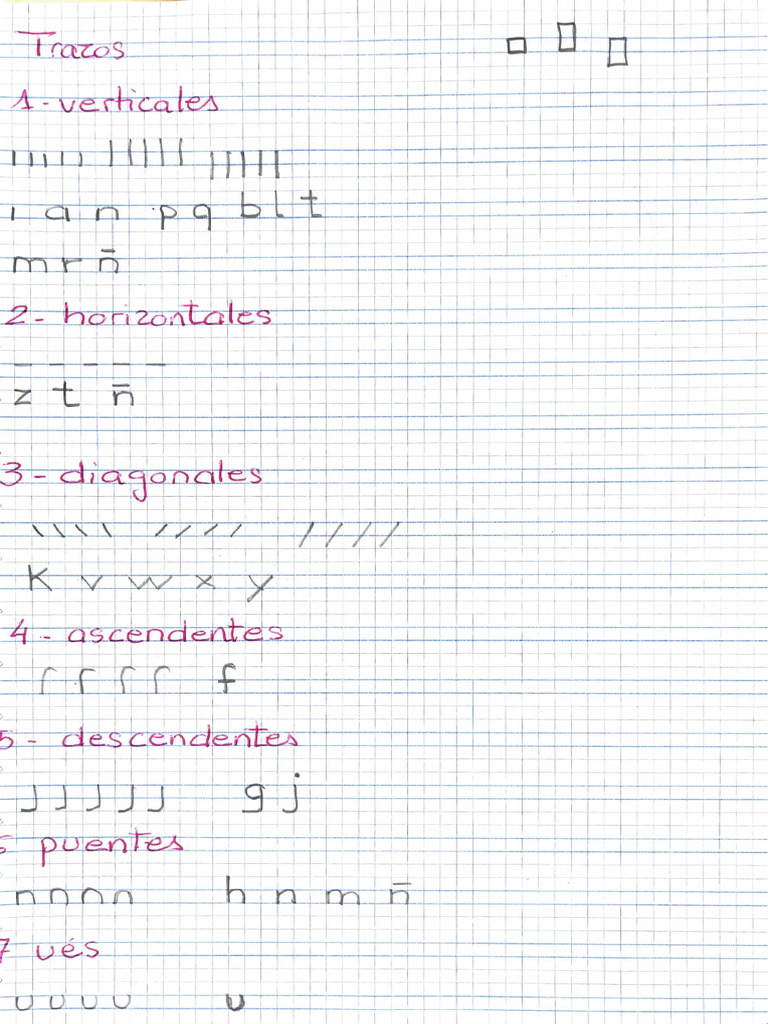 Trazos
1-verticales
ı a n p q b l t
m r n̄
2- horizontales
z t n̄
3- diagonales
k v w x y
4- ascendentes
f
5- descendentes
g j
6 puentes
h n m n̄
7 ués
u